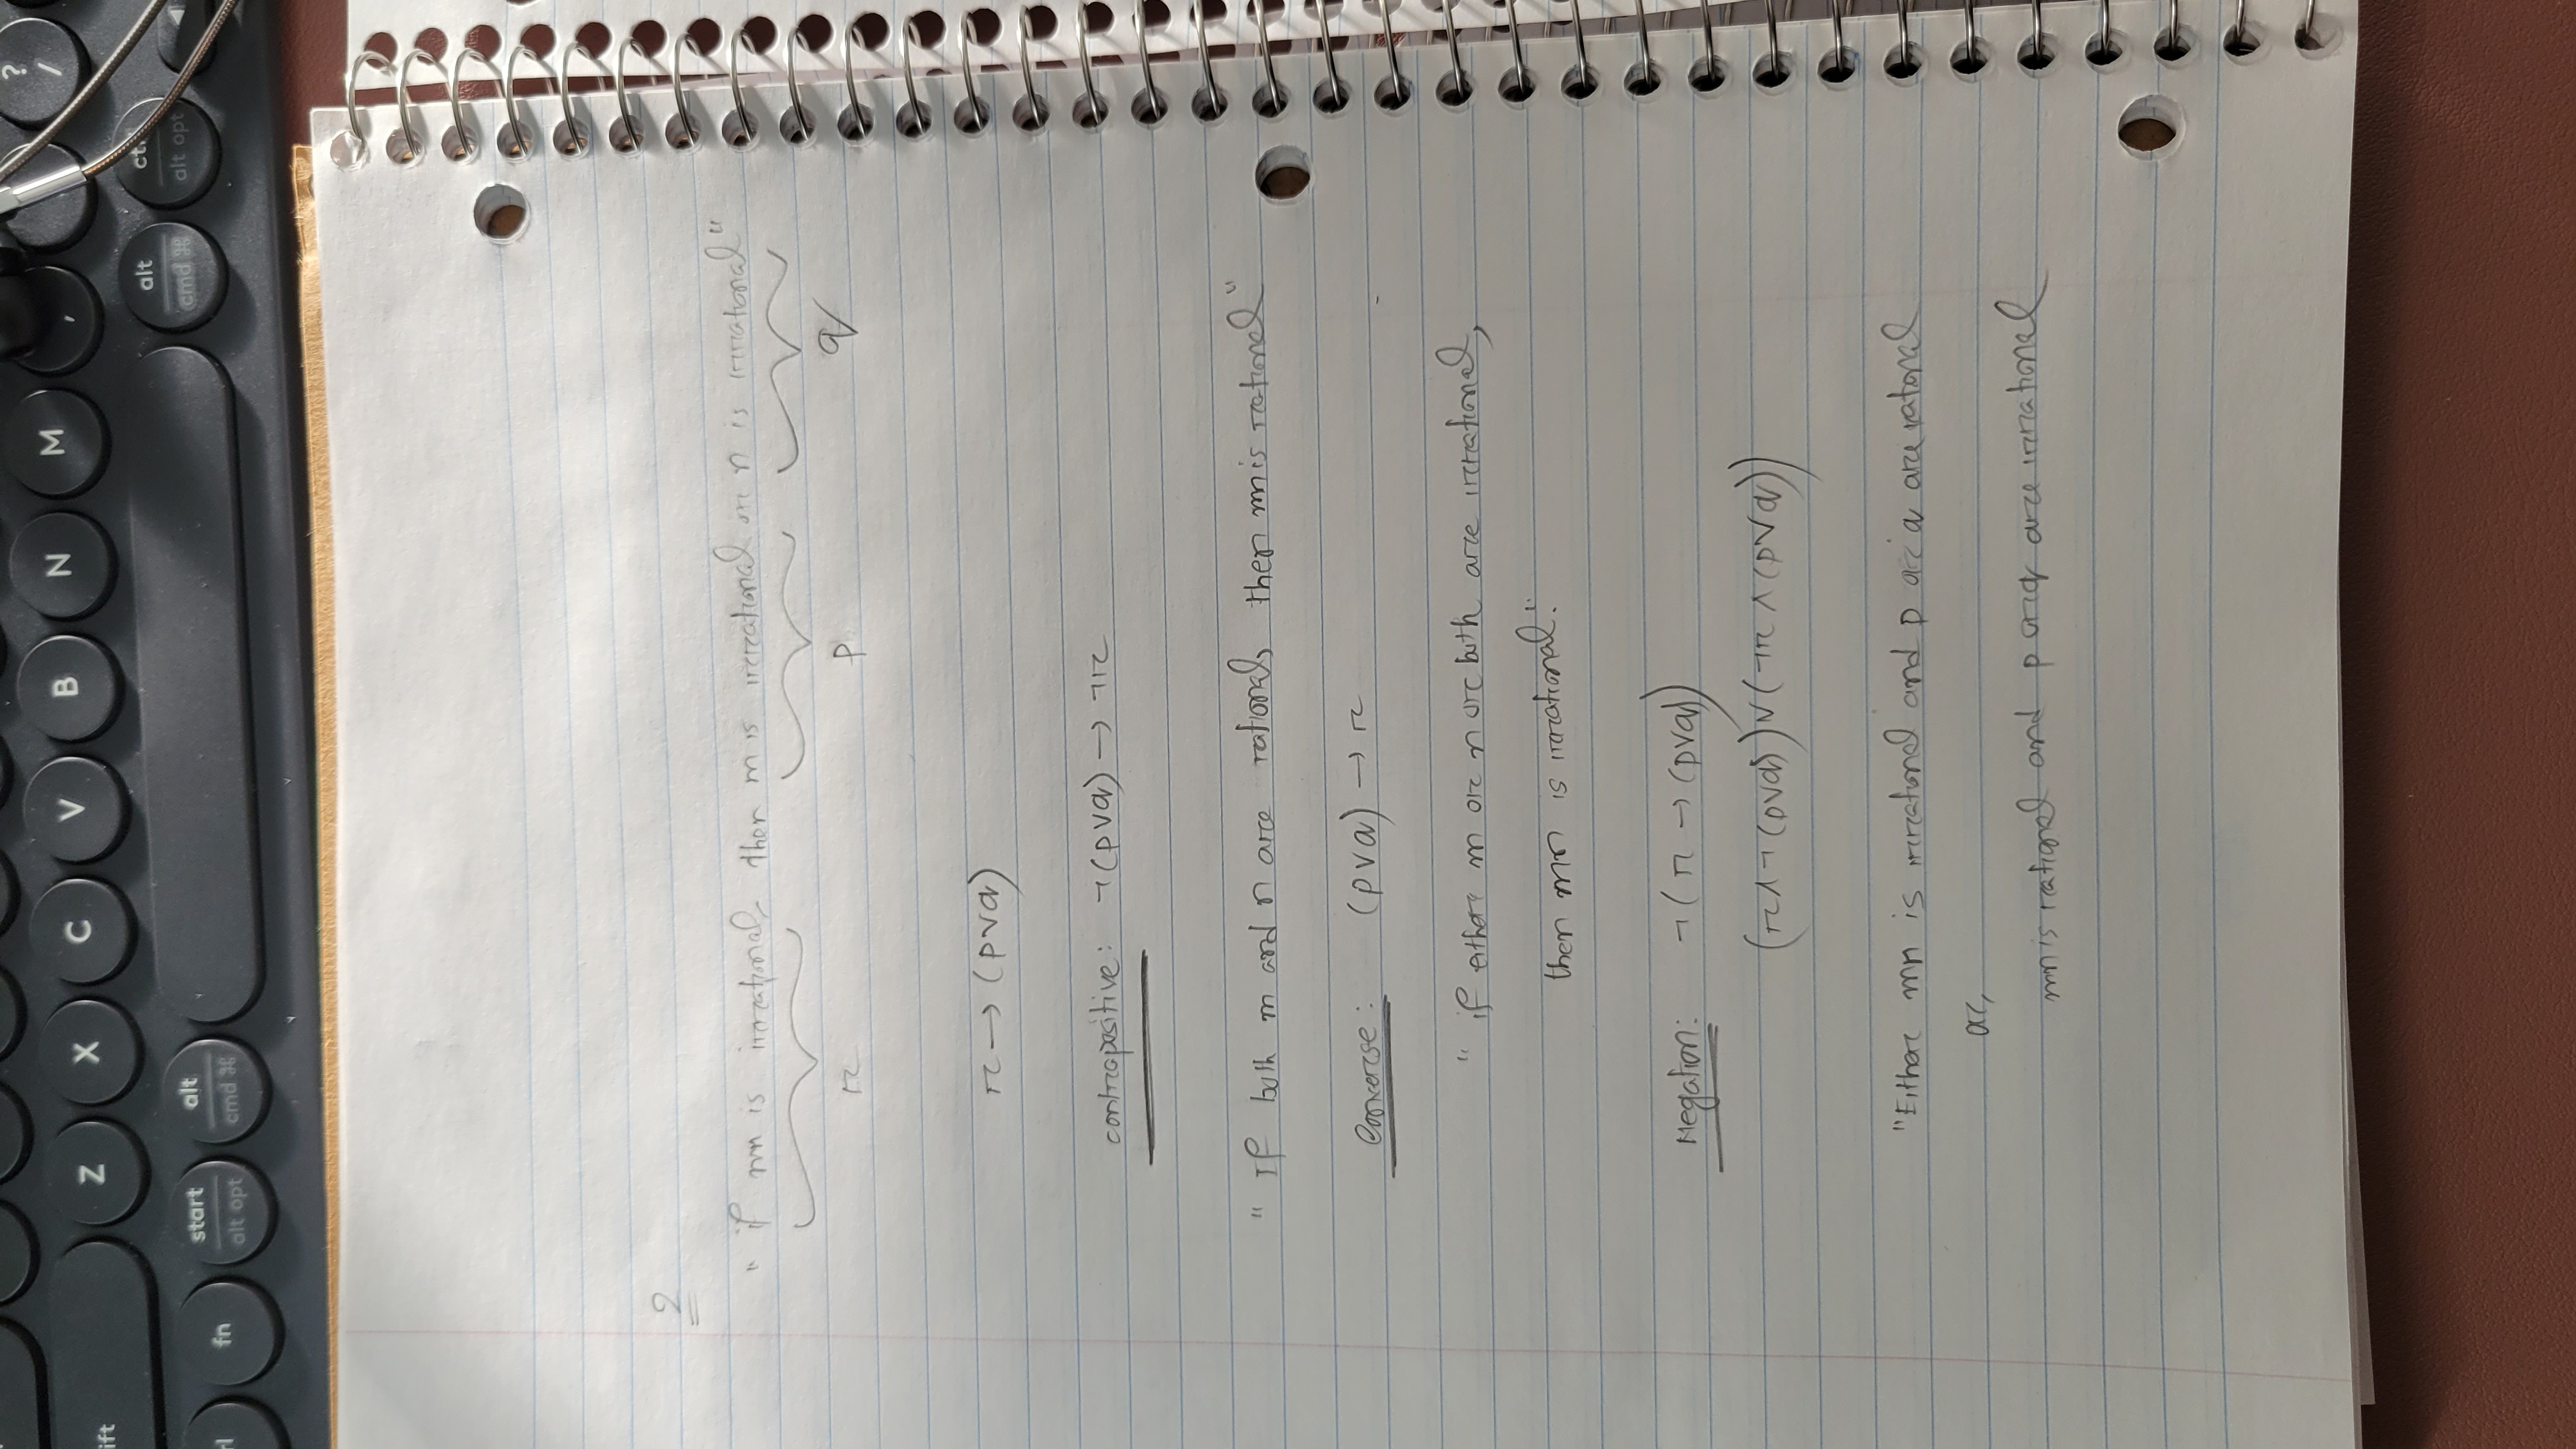 Z X C V B N M , ? /
ift
fn start alt alt
alt opt cmd ⌘ cmd ⌘ alt opt
2
"if mn is irrational, then m is irrational or n is irrational"
r p q
r → (p∨q)
contrapositive: ¬(p∨q) → ¬r
"If both m and n are rational, then mn is rational"
Converse: (p∨q) → r
"if either m or n or both are irrational,
then mn is irrational."
Negation: ¬(r → (p∨q))
(r∧¬(p∨q))∨(¬r∧(p∨q))
"Either mn is irrational and p or q are rational
or,
mn is rational and p or q are irrational